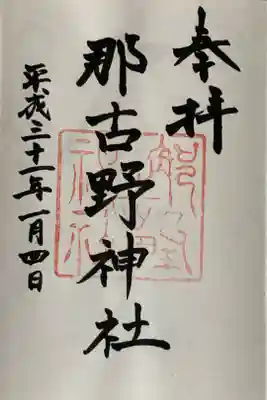 奉拝
那古野神社
平成三十一年一月四日